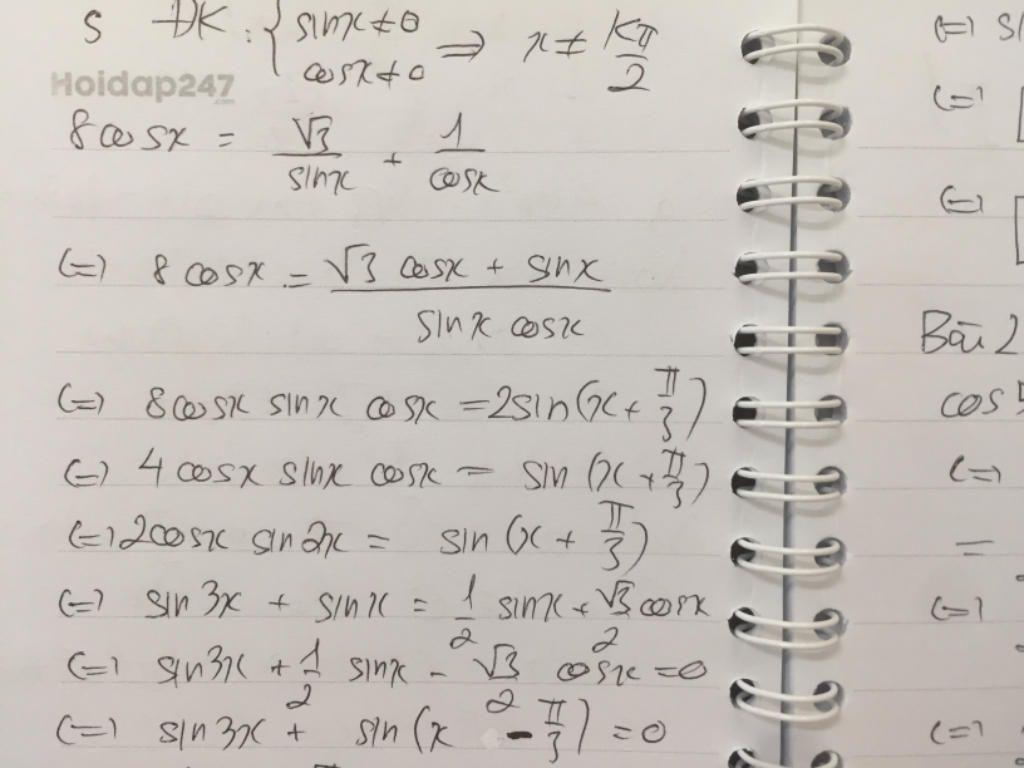 S ĐK: { sinx ≠ 0
cosx ≠ 0 => x ≠ Kπ/2
Hoidap247
.com
8cosx = √3/sinx + 1/cosx
(=) 8 cosx = (√3 cosx + sinx)/(sinx cosx)
(=) 8cosx sinx cosx = 2sin(x + π/3)
(=) 4 cosx sinx cosx = sin (x + π/3)
(=) 2cosx sin2x = sin (x + π/3)
(=) sin 3x + sinx = 1/2 sinx + √3/2 cosx
(=) sin3x + 1/2 sinx - √3/2 cosx = 0
(=) sin3x + sin (x - π/3) = 0
(=) SI
(=)
(=)
Bài 2
cos 5
(=)
=
(=)
(=)